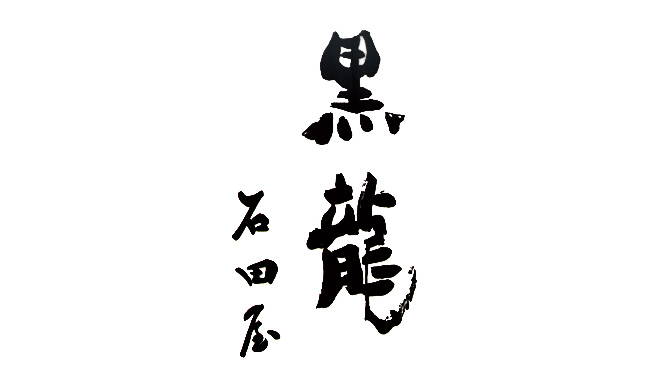 黒龍
石田屋